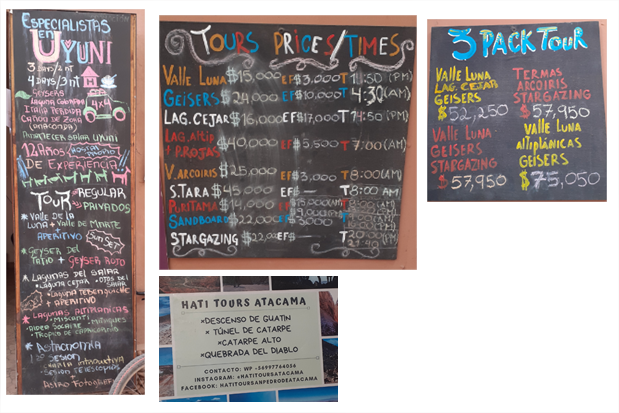 ESPECIALISTAS
EN
UYUNI
3 DAYS/2 NT
4 DAYS/3 NT
GEISERS
LAGUNA COLORADA
4x4
ITALIA PERDIDA
CAÑON DE
(ANACONDA)
AMANECER SALAR UYUNI
12 AÑOS
DE EXPERIENCIA
TOUR REGULAR
PRIVADOS
* VALLE DE LA
LUNA + VALLE DE MARTE
+ APERITIVO
SUNSET
* GEYSER DEL
TATIO + GEYSER
* LAGUNAS DEL SALAR
• LAGUNA CEJAR • OJOS DEL
SALAR
• LAGUNA TEBENQUICHE
+ APERITIVO
* LAGUNAS ALTIPLANICAS
• MISCANTI • MIÑIQUES
• SOCAIRE
• TROPICO DE CAPRICORNIO
* ASTRONOMIA
SESION
INTRODUCTIVA
• SESION TELESCOPIOS
+ ASTRO FOTOGRAF
TOURS PRICES/TIMES
VALLE LUNA $15,000 EF $3,000 T (PM)
GEISERS $24,000 EF 10,000 T 4:30 (AM)
LAG. CEJAR $16,000 EF $17,000 T 14:50 (PM)
LAG. ATIP
+ P. ROJAS $40,000 EF $5,500 T 7:00 (AM)
V. ARCOIRIS $25,000 EF $— T 8:00 (AM)
S. TARA $45,000 EF $— T 8:00 AM
PURITAMA $14,000 EF
SANDBOARD $22,000 EF $3000 T
STARGAZING $22,000 EF $— T
3 PACK TOUR
VALLE LUNA
LAG. CEJAR
GEISERS
$52,250
TERMAS
ARCOIRIS
STARGAZING
$57,950
VALLE LUNA
GEISERS
STARGAZING
$57,950
VALLE LUNA
ALTIPLÁNICAS
GEISERS
$75,050
HATI TOURS ATACAMA
*DESCENSO DE GUATIN
* TÚNEL DE CATARPE
*CATARPE ALTO
*QUEBRADA DEL DIABLO
CONTACTO: WP +56997764056
INSTAGRAM: @HATITOURSATACAMA
FACEBOOK: HATITOURSANPEDRODEATACAMA